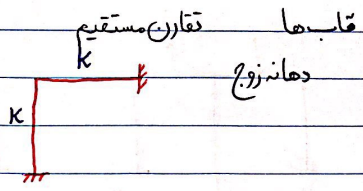 قاب ها تقارن مستقیم
دهانه زوج
K
K